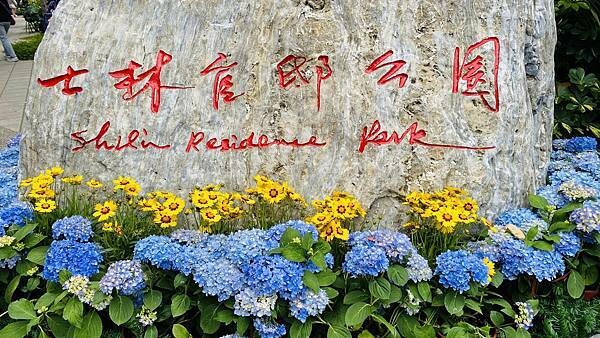 士林官邸公園
Shilin Residence Park